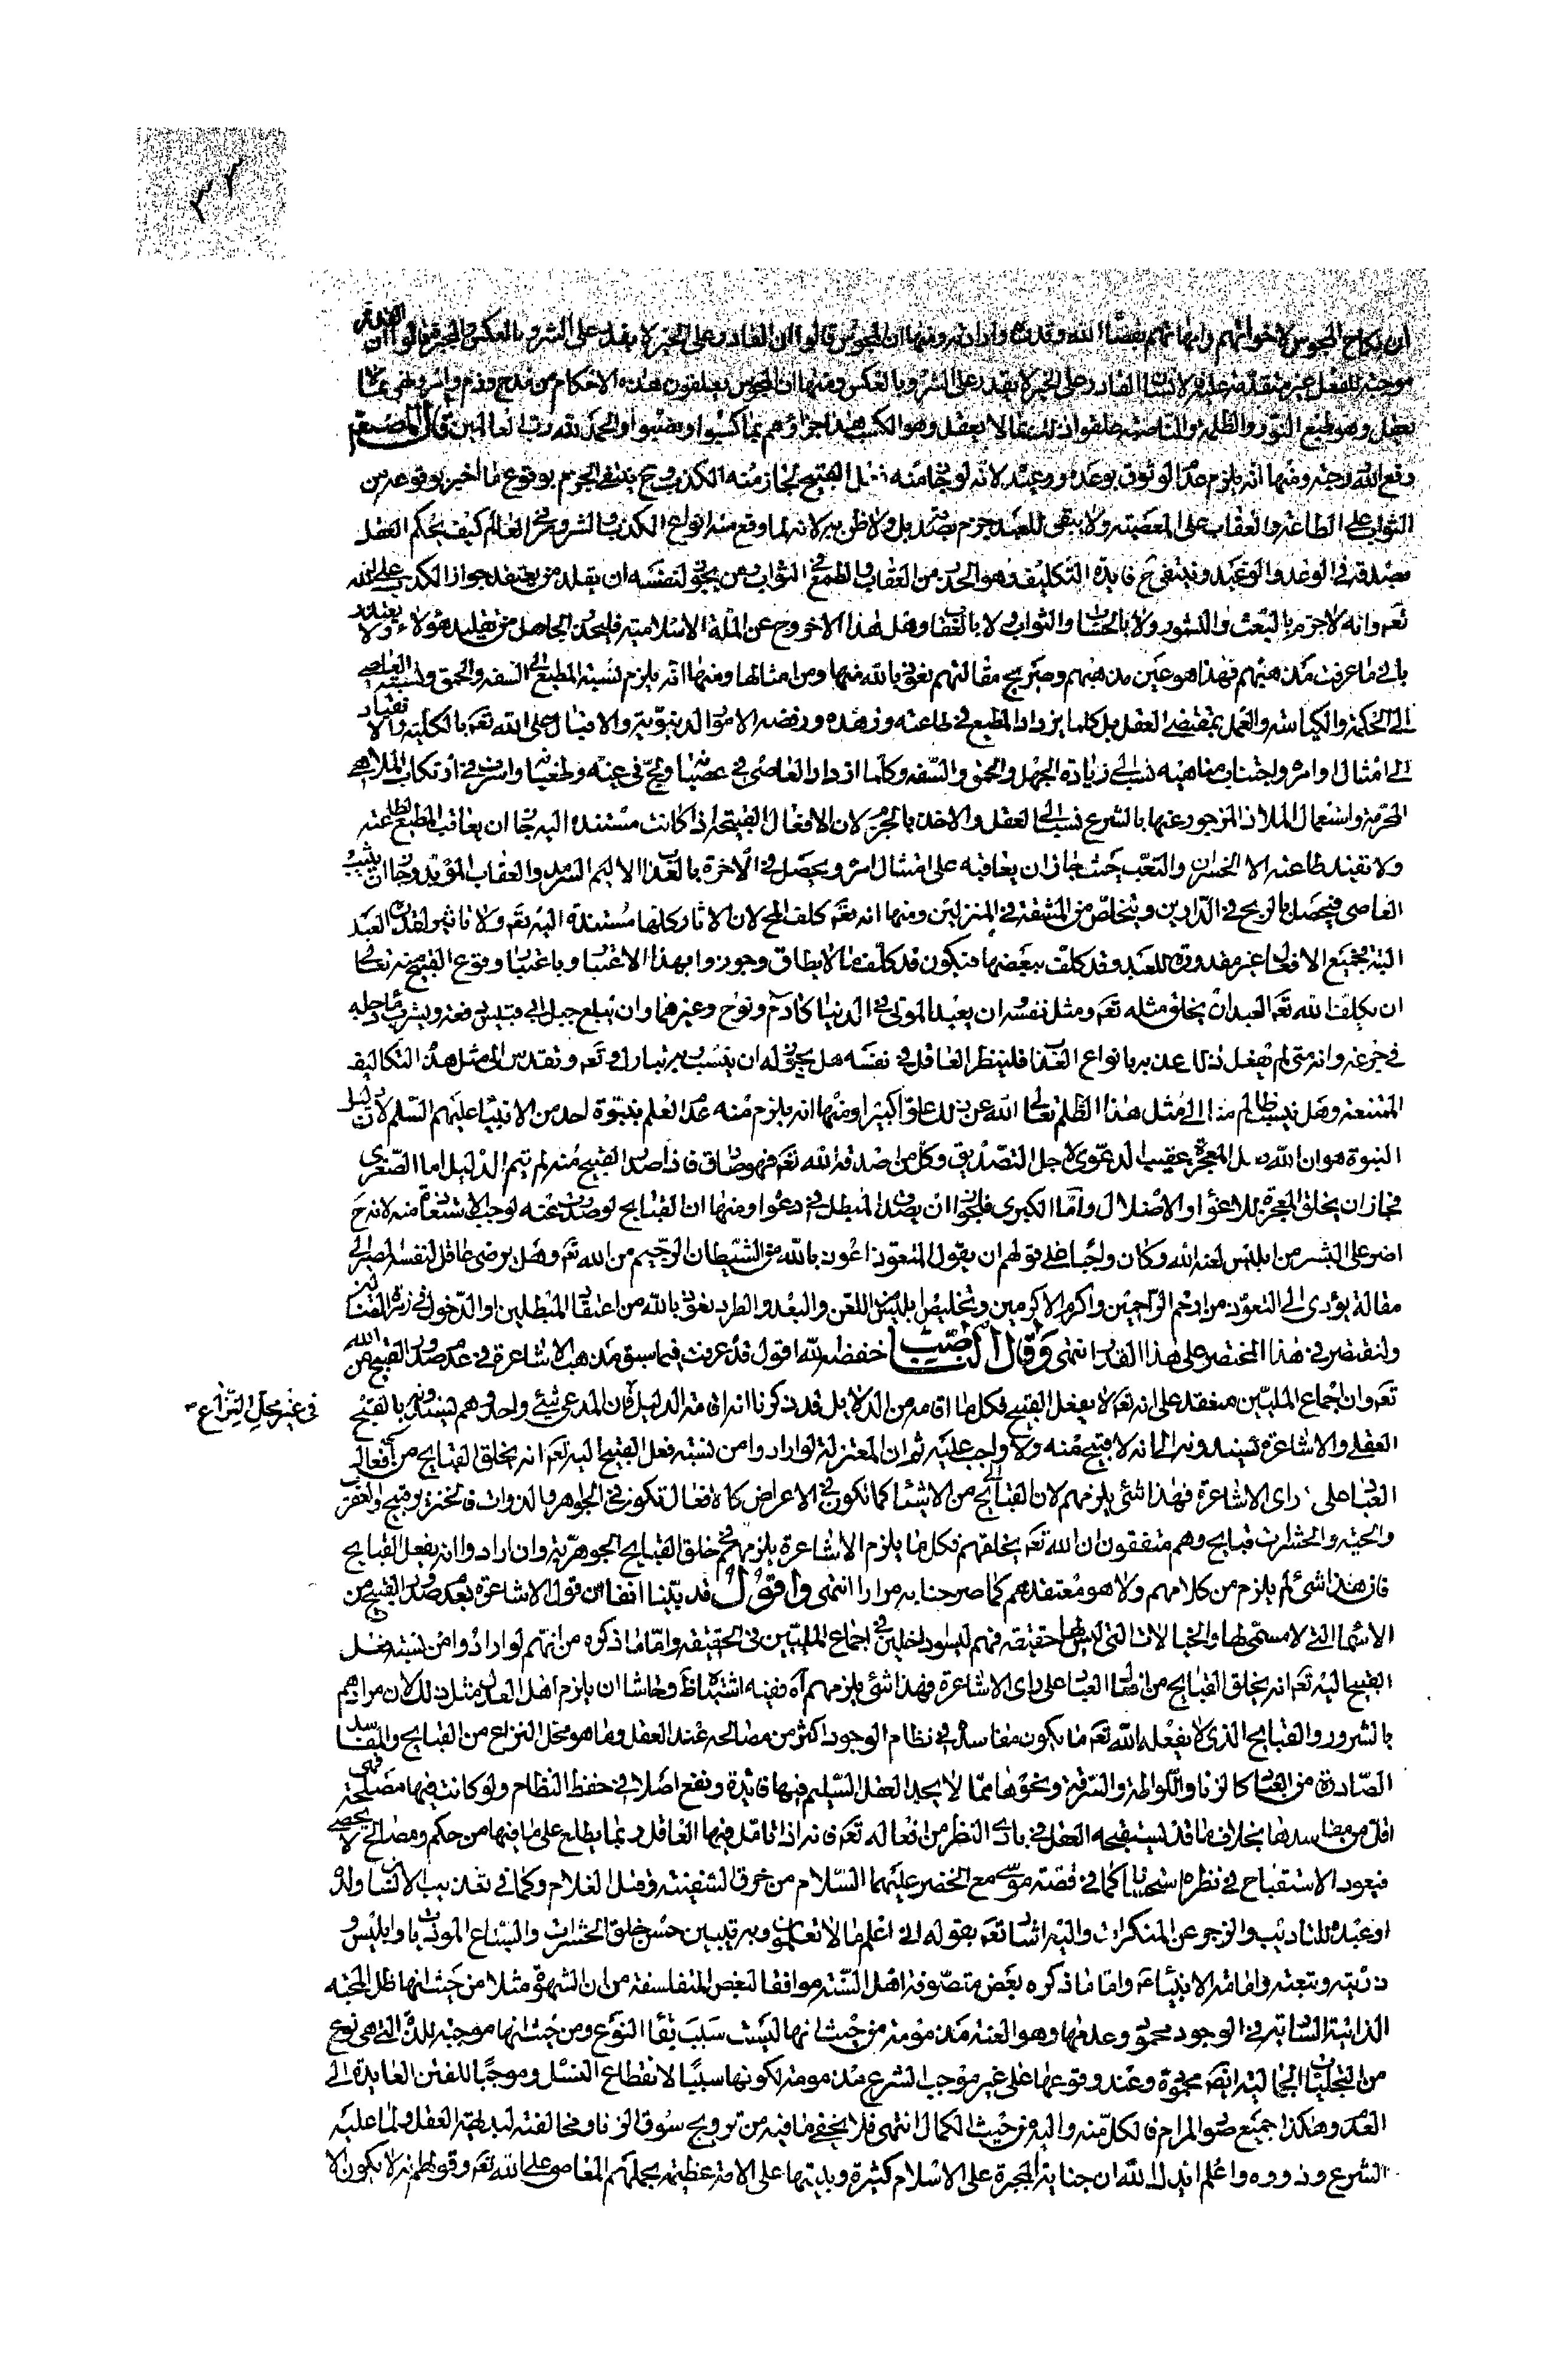 ان نكاح المجوس لاخواتهم وامهاتهم بقضاء الله وقدره وارادته ومنها ان المجوس قالوا ان القادر على الخير لا يقدر على الشر وبالعكس والمجبرة قالوا ان القدرة
موجبة للفعل غير متقدمة عليه فالانسان القادر على الخير لا يقدر على الشر وبالعكس ومنها ان المجوس يعلقون هذه الاحكام من مدح وذم وامر ونهى بما لا
يعقل وهو طبع النور والظلمة والناصبة علقوا ذلك بما لا يعقل وهو الكسب هذا جزاؤهم بما كسبوا ونصبوا والحمد لله رب العالمين قال المصنف
رفع الله درجته ومنها انه يلزم عدم الوثوق بوعده ووعيده لانه لو جاز منه فعل القبيح لجاز منه الكذب وح ينتفى الجزم بوقوع ما اخبر بوقوعه من
الثواب على الطاعة والعقاب على المعصية ولا يبقى للعبد جزم بصدقه بل ولا ظن به لانه لما وقع منه انواع الكذب والشرور فى العالم كيف يحكم العقل
بصدقه فى الوعد والوعيد وينتفى ح فايدة التكليف وهو الحذر من العقاب والطمع فى الثواب ومن يجوز لنفسه ان يقلد من يعتقد جواز الكذب على الله
تعه وانه لا جزم بالبعث والنشور ولا بالحساب والثواب ولا بالعقاب وهل هذا الا خروج عن الملة الاسلامية فليحذر الجاهل من تقليد هؤلاء ولا يعتذر
بانى ما عرفت مذهبهم فهذا هو عين مذهبهم وصريح مقالتهم نعوذ بالله منها ومن امثالها ومنها انه يلزم نسبة المطيع الى السفه والحمق ونسبة العاصى
الى الحكمة والكياسة والعمل بمقتضى العقل بل كلما يزداد المطيع فى طاعته وزهده ورفضه الامور الدنيوية والاقبال على الله تعه بالكلية والانقياد
الى امتثال اوامره واجتناب مناهيه نسب الى زيادة الجهل والحمق والسفه وكلما ازداد العاصى فى عصيانه ولج فى غيه وطغيانه واسرف فى ارتكاب الملاهى
المحرمة واستعمال الملاذ المزجور عنها بالشرع نسب الى العقل والاخذ بالحزم لان الافعال القبيحة اذا كانت مستندة اليه تعا جاز ان يعاقب المطيع لطاعته
ولا تفيده طاعته الا الخسران والتعب حيث جاز ان يعاقبه على امتثال امره ويحصل فى الآخرة بالعذاب الاليم السرمد والعقاب المؤبد وجاز ان يثيب
العاصى فيحصل بالربح فى الدارين ويتخلص من المشقة فى المنزلين ومنها انه تعه كلف المح لان الآثار كلها مستندة اليه تعه ولا تاثير لقدرة العبد
البتة فجميع الافعال غير مقدورة للعبد وقد كلف ببعضها فيكون قد كلف ما لا يطاق وجوزوا بهذا الاعتبار وباعتبار وقوع القبيح منه تعالى
ان يكلف الله تعه العبد ان يخلق مثله تعه ومثل نفسه وان يعيد الموتى فى الدنيا كآدم ونوح وغيرهما وان يبلع جبل ابى قبيس دفعة ويشرب ماء دجلة
فى جرعة وانه متى لم يفعل ذلك عذبه بانواع العذاب فلينظر العاقل فى نفسه هل يجوز له ان ينسب ربه تبارك وتعه وتقدس الى مثل هذه التكاليف
الممتنعة وهل ينسب ظالم منا الى مثل هذا الظلم تعالى الله عن ذلك علوا كبيرا ومنها انه يلزم منه عدم العلم بنبوة احد من الانبياء عليهم السلم لان دليل
النبوة هو ان الله فعل المعجزة عقيب الدعوى لاجل التصديق وكل من صدقه الله تعه فهو صادق فاذا صدر القبيح منه لم يتم الدليل اما الصغرى
فجاز ان يخلق المعجزة للاغواء والاضلال واما الكبرى فلجواز ان يصدق المبطل فى دعواه ومنها ان القبايح لو صدرت عنه لوجب الاستعاذة منه لانه ح
اضر على البشر من ابليس لعنه الله وكان واجبا على قولهم ان يقول المتعوذ اعوذ بالله من الشيطان الرجيم من الله تعه وهل يرضى عاقل لنفسه المصير الى
مقالة يؤدى الى التعوذ من ارحم الراحمين واكرم الاكرمين وتخليص ابليس من اللعن والبعد والطرد نعوذ بالله من اعتقاد المبطلين والدخول فى زمرة الضالين
ولنقتصر فى هذا المختصر على هذا القدر انتهى وقال الناصب خفضه الله اقول قد عرفت فيما سبق مذهب الاشاعرة فى عدم صدور القبيح عن الله
تعه وان اجماع المليين منعقد على انه تعه لا يفعل القبيح فكل ما اقامه من الدلايل قد ذكرنا انه اقامة الدليل فى غير محل النزاع فان المدعى شئ واحد وهم يسندونه بالقبيح
العقلى والاشاعرة يسندونه الى انه لا قبيح منه ولا واجب عليه ثم ان المعتزلة لو ارادوا من نسبة فعل القبيح اليه تعه انه يخلق القبايح من افعال
العباد على راى الاشاعرة فهذا شئ يلزمهم لان القبايح من الاشياء كما تكون فى الاعراض كالافعال تكون فى الجواهر والذوات فالخنزير قبيح والعقرب
والحية والحشرات قبايح وهم متفقون ان الله تعه يخلقهم فكل ما يلزم الاشاعرة يلزمهم فى خلق القبايح الجوهرية وان ارادوا انه يفعل القبايح
فان هذا شئ لم يلزم من كلامهم ولا هو معتقدهم كما صرحنا به مرارا انتهى واقول قد بينا آنفا ان قول الاشاعرة بعدم صدور القبيح من
الاسماء التى لا مسمى لها والخيالات التى ليس لها حقيقة فهم ليسوا داخلين فى اجماع المليين فى الحقيقة واما ما ذكره من انهم لو ارادوا من نسبة فعل
القبيح اليه تعه انه يخلق القبايح من افعال العباد على راى الاشاعرة فهذا شئ يلزمهم آه ففيه اشتباه ظ وحاشا ان يلزم اهل العدل مثل ذلك لان مرادهم
بالشرور والقبايح الذى لا يفعله الله تعه ما يكون مفاسده فى نظام الوجود اكثر من مصالحه عند العقل وما هو محل النزاع من القبايح والمفاسد
الصادرة من العباد كالزنا واللواطة والسرقة ونحوها مما لا يجد العقل السليم فيها فائدة ونفع اصلا فى حفظ النظام ولو كانت فيها مصلحة فهى
اقل من مفاسدها بخلاف ما قد يستقبحه العقل فى بادى النظر من افعاله تعه فانه اذا تامل فيها العاقل ربما يطلع على ما فيها من حكم ومصالح لا يحصى
فيعود الاستقباح فى نظره استحسانا كما فى قصة موسى مع الخضر عليهما السلام من خرق السفينة وقتل الغلام وكما فى تعذيب الانسان ولده
او عبده للتاديب والزجر عن المنكرات واليه اشار تعه بقوله انى اعلم ما لا تعلمون وبه يتبين حسن خلق الحشرات والسباع الموذيات وابليس و
ذريته وتبعته واماتة الانبياء ع واما ما ذكره بعض متصوفة اهل السنة موافقا لبعض المتفلسفة من ان الشهوة مثلا من حيث انها ظل المحبة
الذاتية السارية فى الوجود محمودة وعدمها وهو العنة مذمومة من حيث انها ليست سبب بقاء النوع ومن حيث انها موجبة للذة التى هى نوع
من التجليات الجمالية ايضه محمودة وعند وقوعها على غير موجب الشرع مذمومة لكونها سببا لانقطاع النسل وموجبا للفتن العايدة الى
العدم وهكذا جميع صور المرام فالكل منه واليه من حيث الكمال انتهى فلا يخفى ما فيه من ترويج سوق الزنا ومخالفته لبديهة العقل ولما عليه
الشرع وذووه واعلم ايدك الله ان جناية المجبرة على الاسلام كثيرة وبليتها على الامة عظيمة بحملهم المعاصى على الله تعه وقولهم انه لا يكون الا